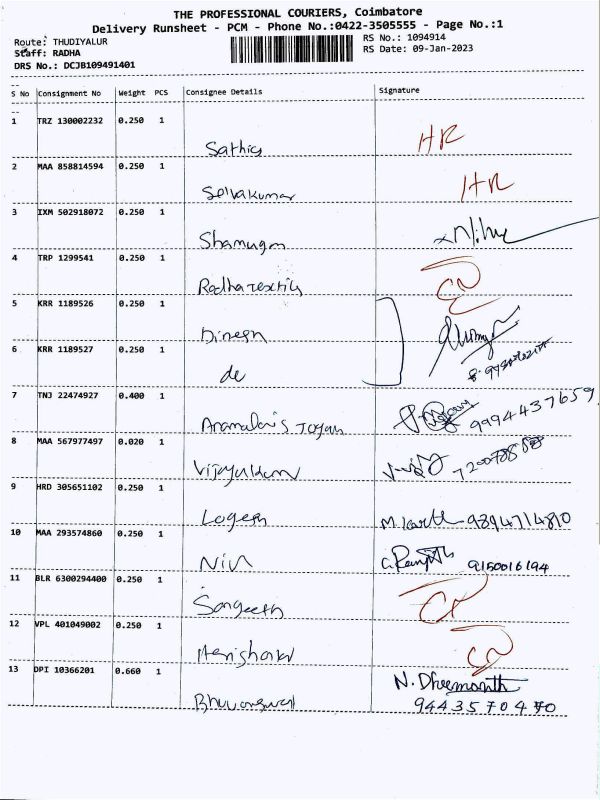 THE PROFESSIONAL COURIERS, Coimbatore
Delivery Runsheet - PCM - Phone No.:0422-3505555 - Page No.:1
Route: THUDIYALUR
RS No.: 1094914
Staff: RADHA
RS Date: 09-Jan-2023
DRS No.: DCJB109491401
S No Consignment No Weight PCS Consignee Details Signature
1 TRZ 130002232 0.250 1
HR
2 MAA 858814594 0.250 1
Selvakumar HR
3 IXM 502918072 0.250 1
Shamugm
4 TRP 1299541 0.250 1
5 KRR 1189526 0.250 1
Dinesh
6 KRR 1189527 0.250 1
do
7 TNJ 22474927 0.400 1
9994437659
8 MAA 567977497 0.020 1
9 HRD 305651102 0.250 1
Logesh 9894714810
10 MAA 293574860 0.250 1
9150016194
11 BLR 6300294400 0.250 1
Sangeeth
12 VPL 401049002 0.250 1
13 DPI 10366201 0.660 1
N. Dheemanth
9443570470